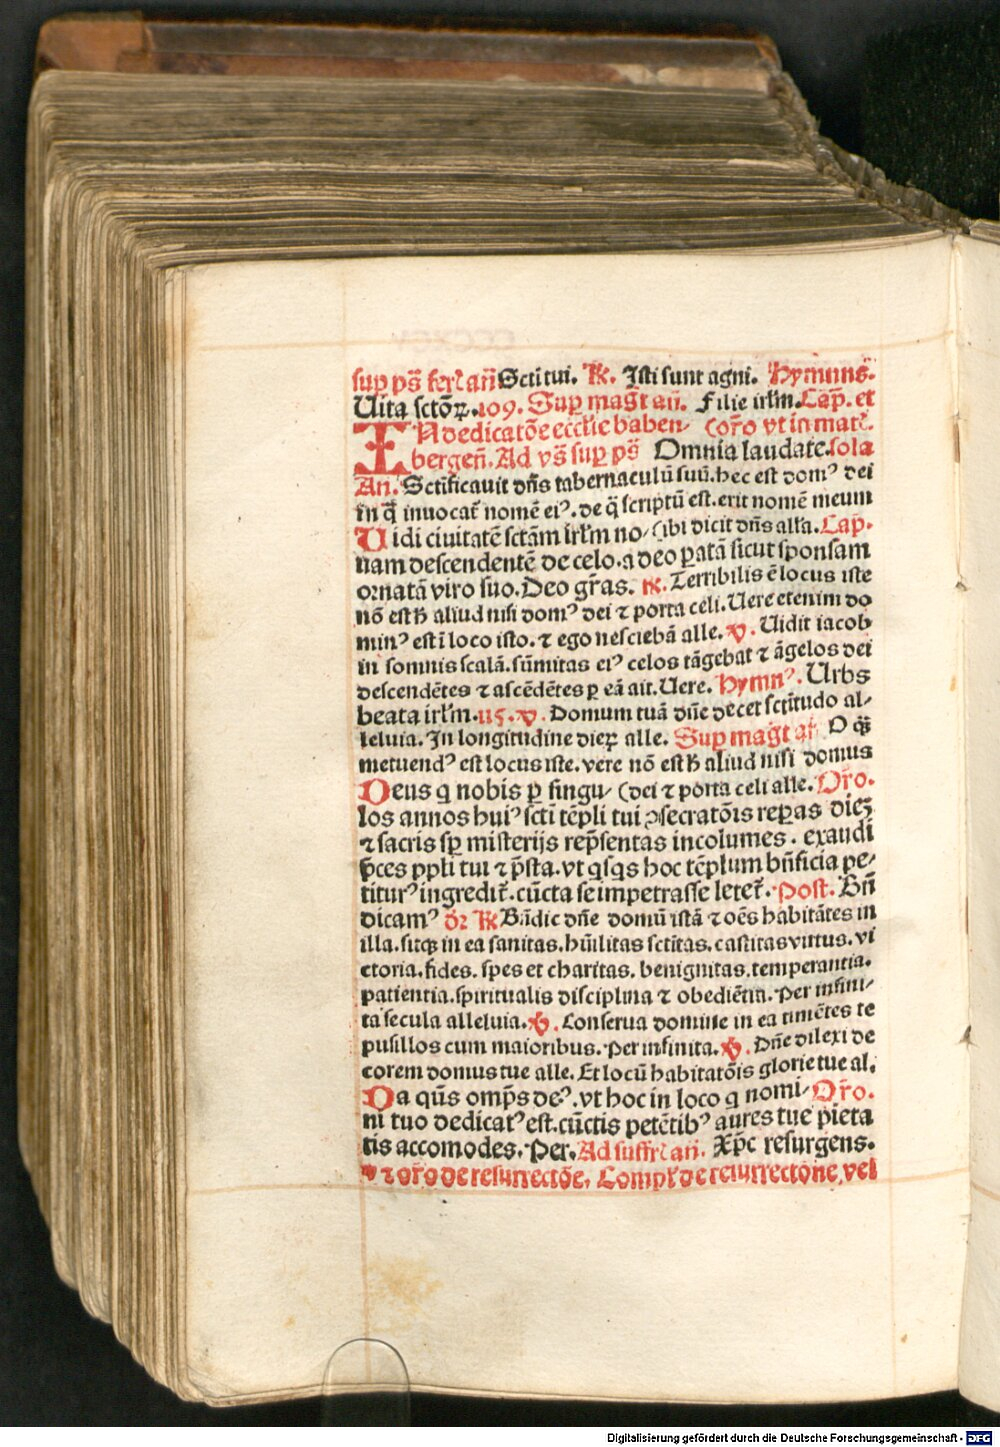 sup ps̄ ferꝭ an̄ Scti tui. ℟. Isti sunt agni. Hymnus.
Uita sctōꝝ. 109. Sup mag̃t an̄. Filie irl̃m. Cap̃. et
IN dedicatōe eccl̃ie baben⸗ (or̃o vt in mat̃.
bergen̄. Ad vs̄ sup ps̄ Omnia laudate. sola
An̄. Sctificauit dn̄s tabernaculū suū. hec est domꝰ dei
in q̄ inuocat̃ nomē eiꝰ. de q̄ scriptū est. erit nomē meum
Uidi ciuitatē sctām irl̃m no⸗ (ibi dicit dn̄s alla. Cap̃.
uam descendentē de celo. a deo ꝑatā sicut sponsam
ornatā viro suo. Deo gr̃as. ℟. Terribilis ē locus iste
nō est ħ aliud nisi domꝰ dei ⁊ porta celi. Uere etenim do
minꝰ est ī loco isto. ⁊ ego nesciebā alle. ℣. Uidit iacob
in somnis scalā. sūmitas eiꝰ celos tāgebat ⁊ āgelos dei
descendētes ⁊ ascēdētes ꝑ eā ait. Uere. Hymnꝰ. Urbs
beata irl̃m. 115. ℣. Domum tuā dn̄e decet sctītudo al⸗
leluia. In longitudine dieꝝ alle. Sup mag̃t an̄. O q̄ꝫ
metuendꝰ est locus iste. vere nō est ħ aliud nisi domus
Deus q nobis ꝑ singu⸗ (dei ⁊ porta celi alle. Or̃o.
los annos huiꝰ scti tēpli tui ꝯsecratōis reꝑas dieꝫ
⁊ sacris sꝑ misterijs rep̄sentas incolumes. exaudi
p̄ces ppli tui ⁊ p̄sta. vt qsqs hoc tēplum bn̄ficia pe⸗
titurꝰ ingredit̃. cūcta se impetrasse letet̃. Post. Bn̄
dicamꝰ ℟ Bn̄dic dn̄e domū istā ⁊ oēs habitātes in
illa. sitqꝫ in ea sanitas. hūilitas sctītas. castitas virtus. vi
ctoria. fides. spes et charitas. benignitas. temperantia.
patientia. spiritualis disciplina ⁊ obediētia. Per infini⸗
ta secula alleluia. ℣. Conserua domine in ea timētes te
pusillos cum maioribus. Per infinita. ℣. Dn̄e dilexi de
corem domus tue alle. Et locū habitatōis glorie tue al.
Da qūs omp̄s deꝰ. vt hoc in loco q nomi⸗ Or̃o.
ni tuo dedicatꝰ est. cūctis petētibꝰ aures tue pieta
tis accomodes. Per. Ad suffrꝭ an̄. Xp̄c resurgens.
℣ ⁊ or̃o de resurrectōe. Compl̃ de resurrectione, vel
Digitalisierung gefördert durch die Deutsche Forschungsgemeinschaft - DFG